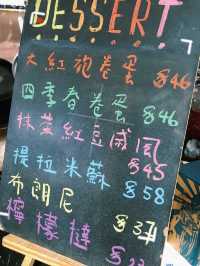 DESSERT
大紅袍卷蛋 $46
四季春卷蛋 $46
抹茶紅豆戚風 $45
提拉米蘇 $58
布朗尼 $37
檸檬撻